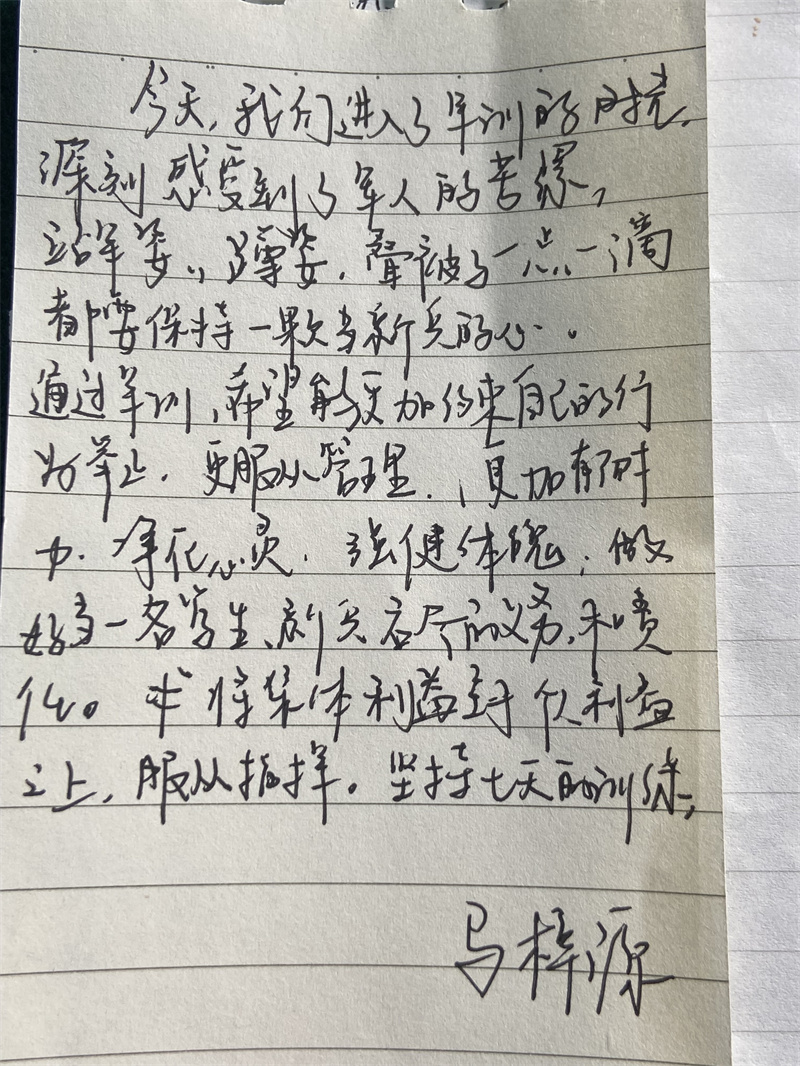 今天,我们进入了军训的时光,
深刻感受到了军人的苦练,
站军姿,蹲姿,叠被子一点一滴
都要保持一颗当新兵的心。
通过军训,希望能更加约束自己的行
为举止.更服从管理.更加有耐
力.净化心灵.强健体魄,做
好当一名学生、新兵应尽的义务,和责
任。将集体利益至于个人利益
之上,服从指挥。坚持七天的训练,
马梓源